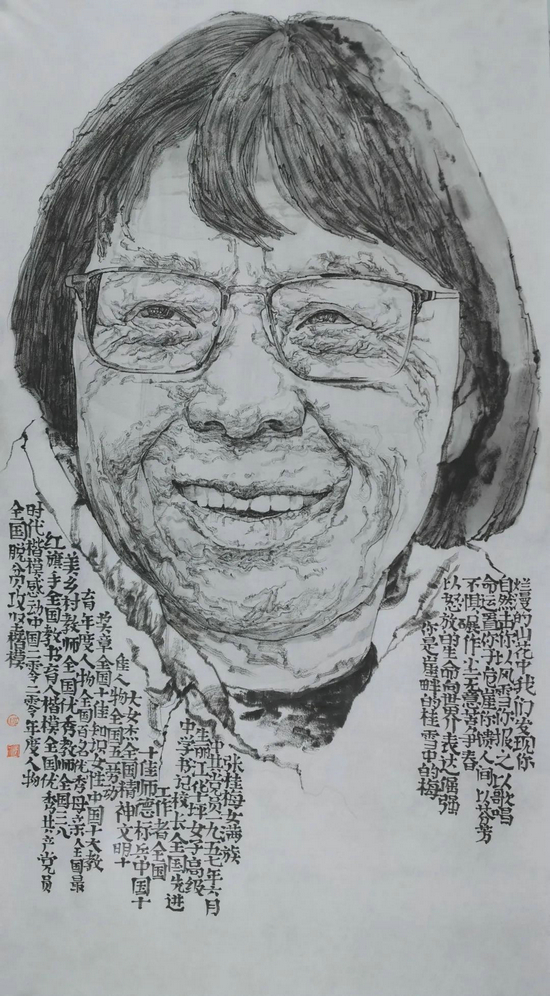 烂漫的山花中我们发现你
自然击你以风雪你报之以歌唱
命运置你于危崖你馈人间以芬芳
不惧碾作尘无意苦争春
以怒放的生命向世界表达倔强
你是崖畔的桂雪中的梅
张桂梅女满族
中共党员一九五七年六月
生丽江华坪女子高级
中学书记校长全国先进
工作者全国
十佳师德标兵中国十
大女杰全国精神文明十
佳人物全国五一劳动
奖章全国十佳知识女性中国十大教
育年度人物全国百名优秀母亲全国最
美乡村教师全国优秀教师全国三八
红旗手全国教书育人楷模全国优秀共产党员
时代楷模感动中国二零二零年度人物
全国脱贫攻坚楷模